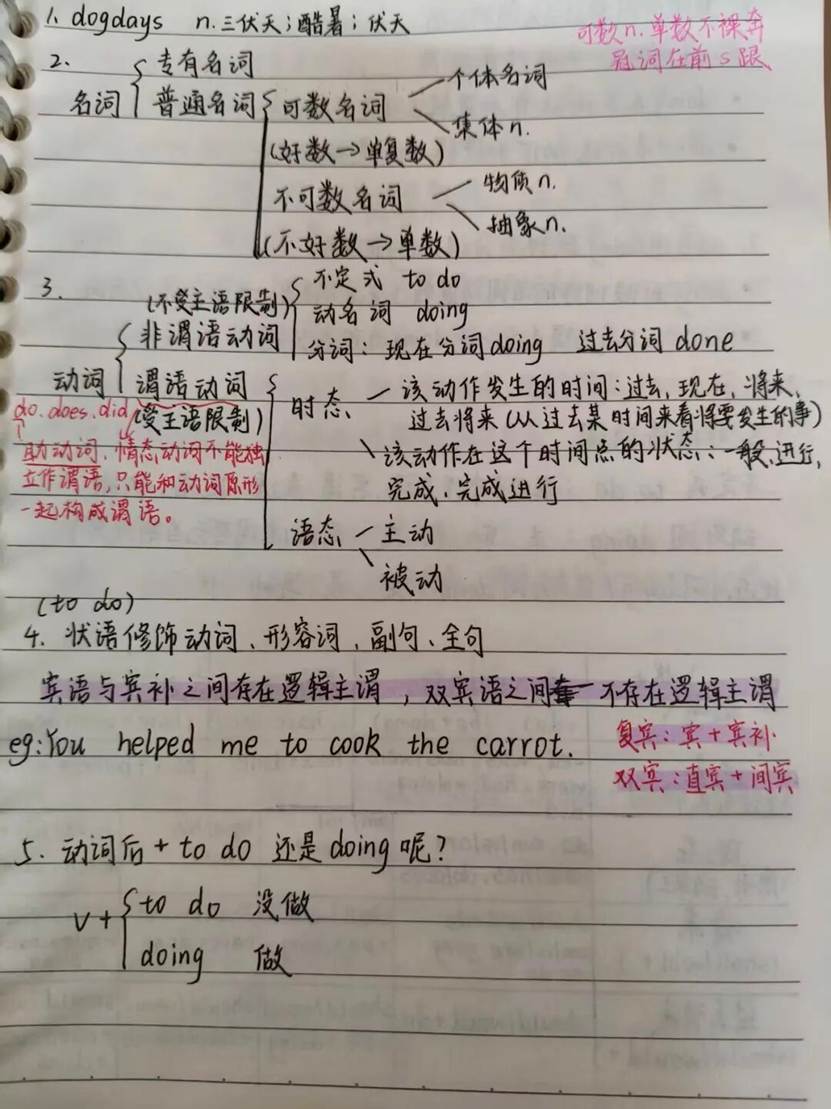 1. dogdays n.三伏天；酷暑；伏天
可数n.单数不裸奔
冠词在前s跟
2.
名词
专有名词
普通名词
可数名词
个体名词
集体n.
(好数→单复数)
不可数名词
物质n.
抽象n.
(不好数→单数)
3.
动词
(不受主语限制)
非谓语动词
不定式 to do
动名词 doing
分词：现在分词doing 过去分词 done
谓语动词
(受主语限制)
do.does.did
助动词、情态动词不能独
立作谓语，只能和动词原形
一起构成谓语。
时态
该动作发生的时间：过去，现在，将来，
过去将来(从过去某时间来看将要发生的事)
该动作在这个时间点的状态：一般、进行，
完成、完成进行
语态
主动
被动
(to do)
4. 状语修饰动词、形容词，副句、全句
宾语与宾补之间存在逻辑主谓，双宾语之间不存在逻辑主谓
eg:You helped me to cook the carrot.
复宾：宾+宾补
双宾：直宾+间宾
5. 动词后+to do 还是doing呢？
v+
to do 没做
doing 做